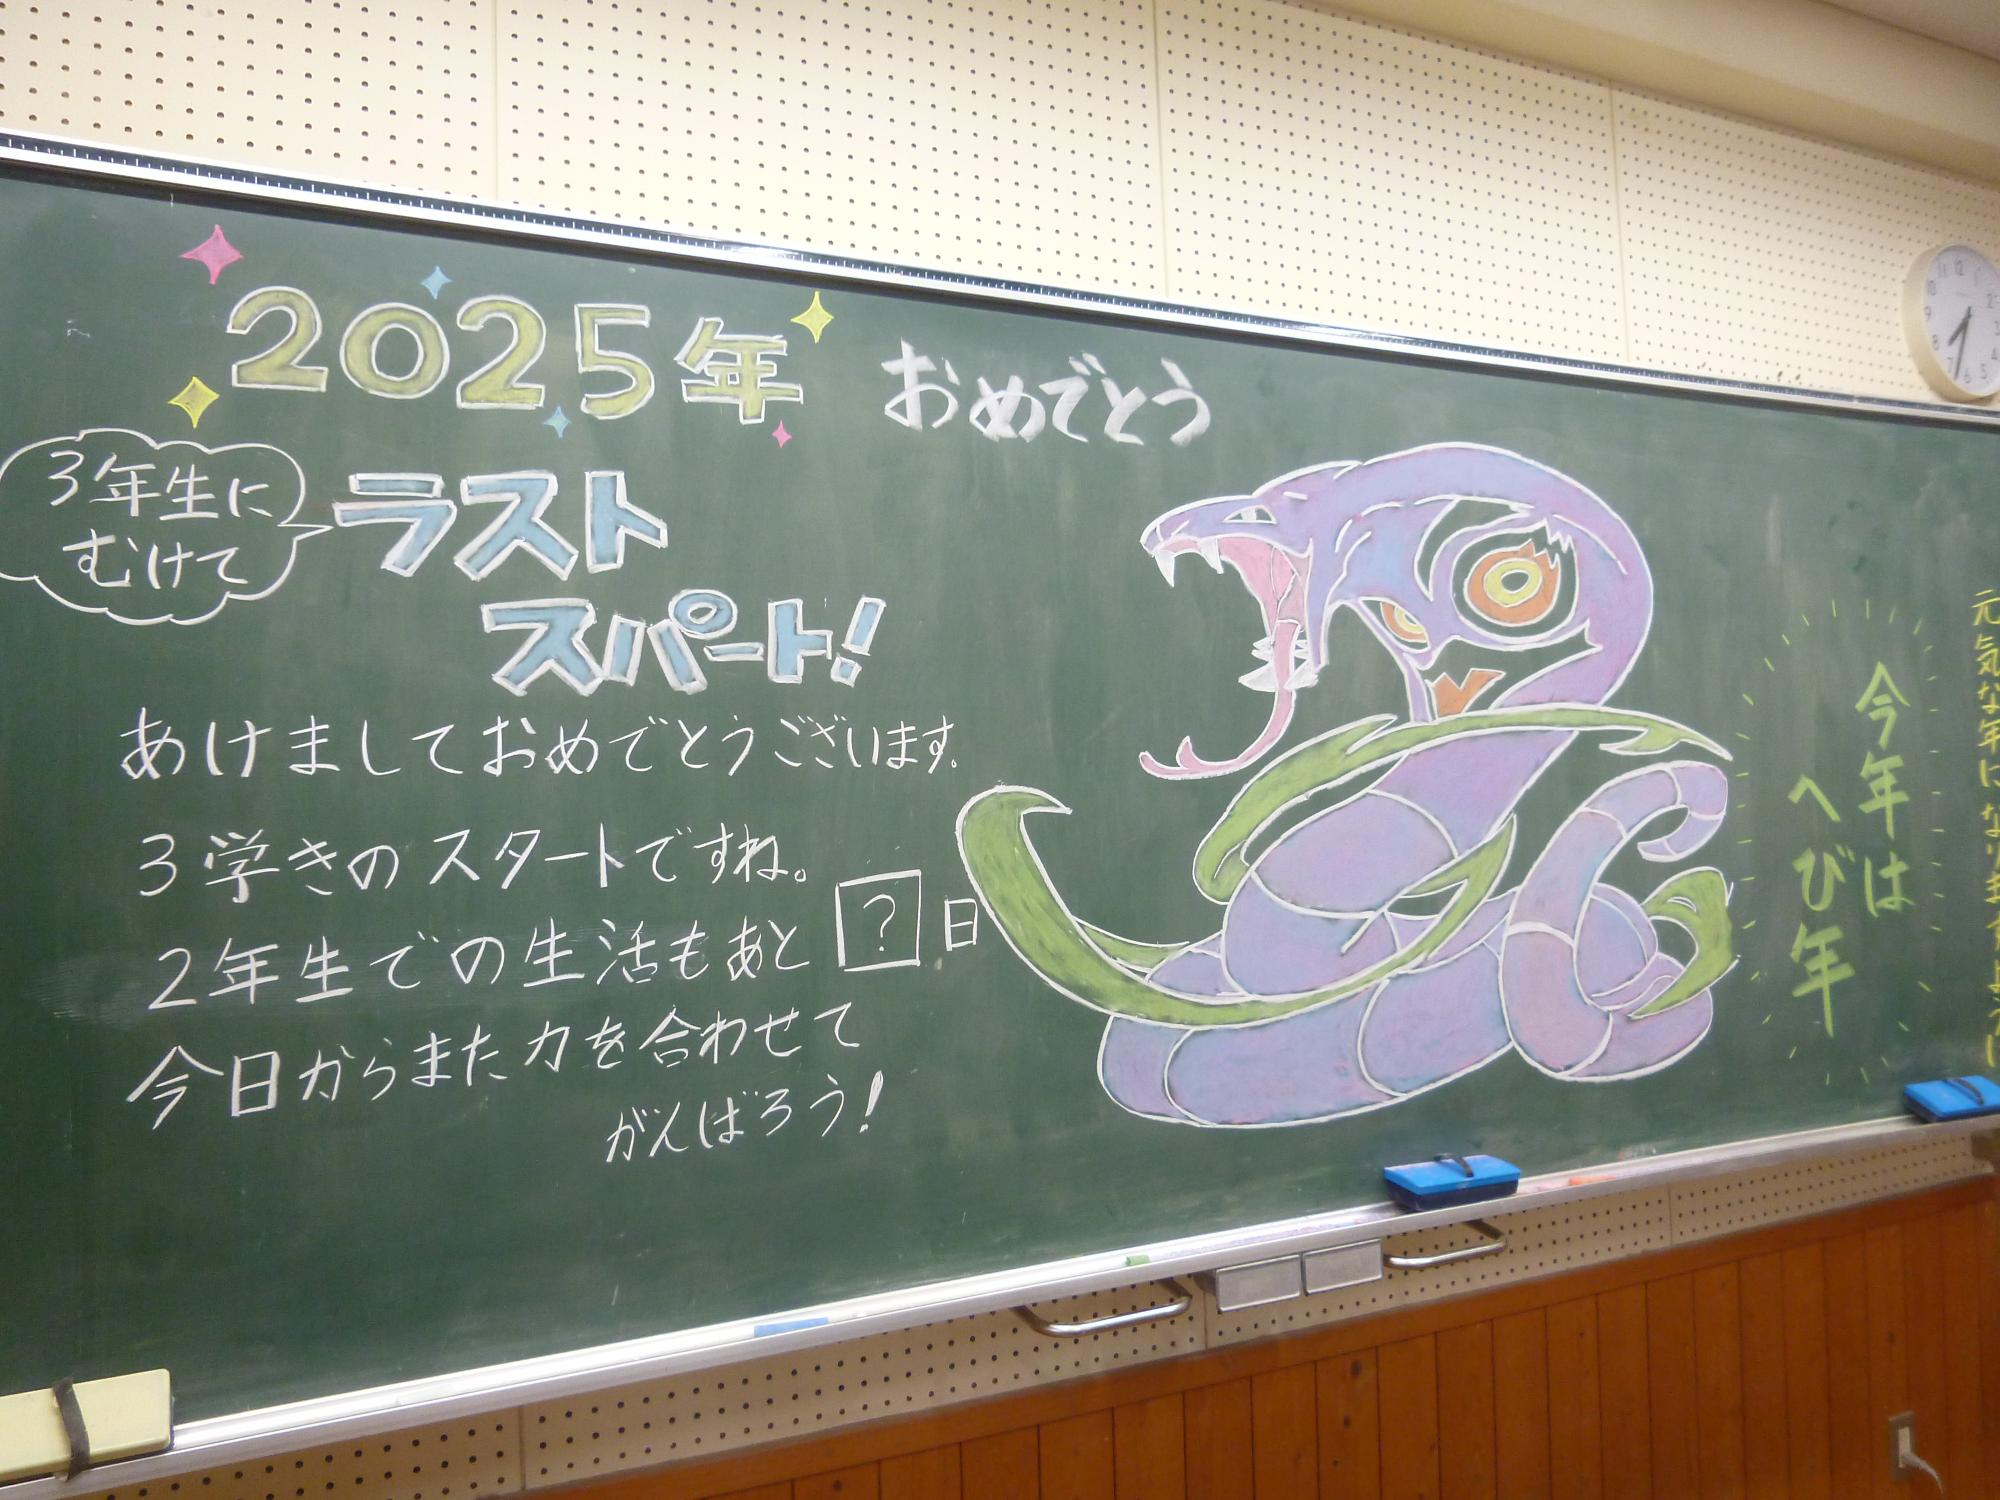 2025年 おめでとう
3年生に
むけて
ラスト
スパート!
あけましておめでとうございます。
3学きのスタートですね。
2年生での生活もあと ? 日
今日からまた力を合わせて
がんばろう!
今年は
へび年
元気な年になりますように